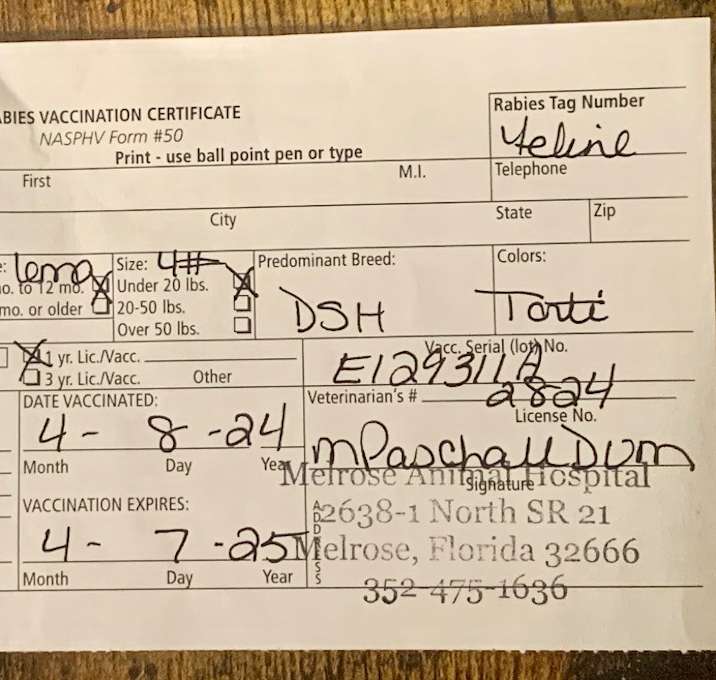 ABIES VACCINATION CERTIFICATE
NASPHV Form #50
Print - use ball point pen or type
Rabies Tag Number
Feline
First
M.I.
Telephone
City
State
Zip
e: 10mo
o. to 12 mo.
mo. or older
Size: 4#
Under 20 lbs.
20-50 lbs.
Over 50 lbs.
Predominant Breed:
DSH
Colors:
Torti
1 yr. Lic./Vacc.
3 yr. Lic./Vacc. Other
Vacc. Serial (lot) No.
E129311A
DATE VACCINATED:
4 - 8 - 24
Month Day Year
Veterinarian's # 2824
License No.
MPaschall DVM
Signature
VACCINATION EXPIRES:
4 - 7 - 25
Month Day Year
ADDRESS
Melrose Animal Hospital
2638-1 North SR 21
Melrose, Florida 32666
352-475-1636